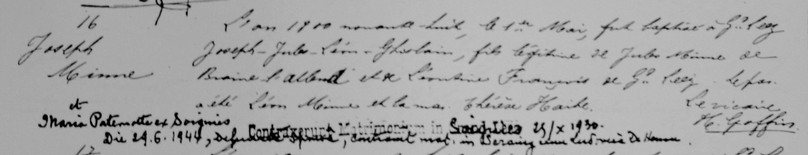 16
Joseph
Minne
L'an 1900 nonante-huit, le 1er Mai, fut baptisé à Gd Leez
Joseph-Jules-Léon-Ghislain, fils légitime de Jules Minne de
Braine l'alleud et de Léontine François de Gd Leez. Le par.
a été Léon Minne et la mar. Thérèse
Le vicaire
et Maria Paternotte ex Soignies
Contraxerunt Matrimonium in Soignies 25/X 1930.
Die 29.6.1944, defuncta sponsa, contraxit mat. in Seraing cum de